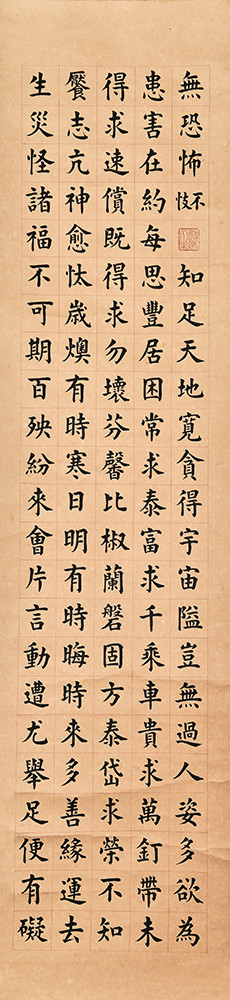 無恐怖不忮知足天地寬貪得宇宙隘豈無過人姿多欲為
患害在約每思豐居困常求泰富求千乘車貴求萬釘帶未
得求速償既得求勿壞芬馨比椒蘭磐固方泰岱求榮不知
饜志亢神愈忲歲燠有時寒日明有時晦時來多善緣運去
生災怪諸福不可期百殃紛來會片言動遭尤舉足便有礙